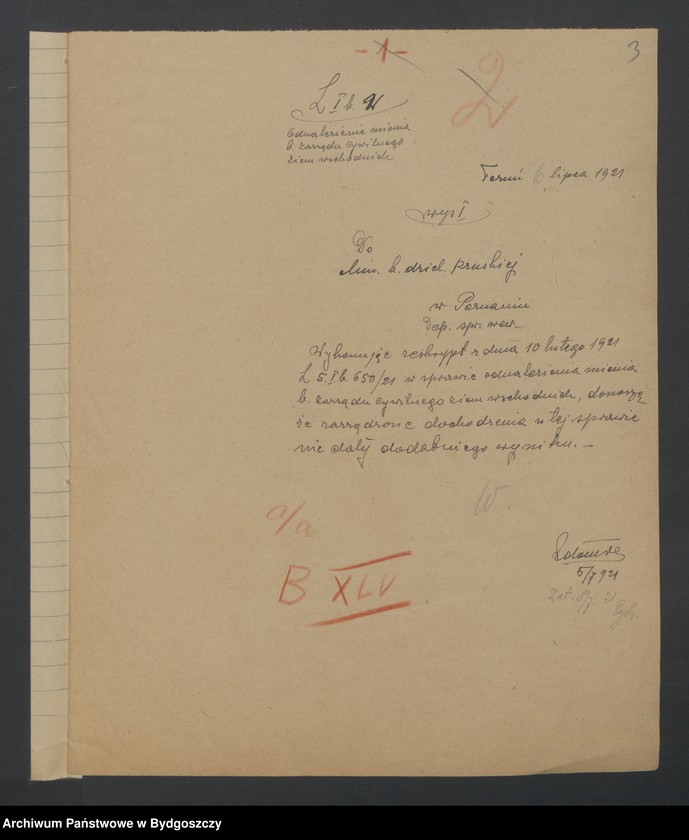 - 1 -
2
3
L I b. 2
Odnalezienie mienia
b. zarządu cywilnego
ziem wschodnich
Toruń 6 lipca 1921
wyp I
Do
Min. b. dziel. pruskiej
w Poznaniu
Dep. spr. wew.
Wykonując reskrypt z dnia 10 lutego 1921
L 5. I b. 650/21 w sprawie odnalezienia mienia
b. zarządu cywilnego ziem wschodnich, donoszę
że zarządzone dochodzenia w tej sprawie
nie dały dodatniego wyniku. —
W.
a/a
B XLV
5/7 921
Archiwum Państwowe w Bydgoszczy